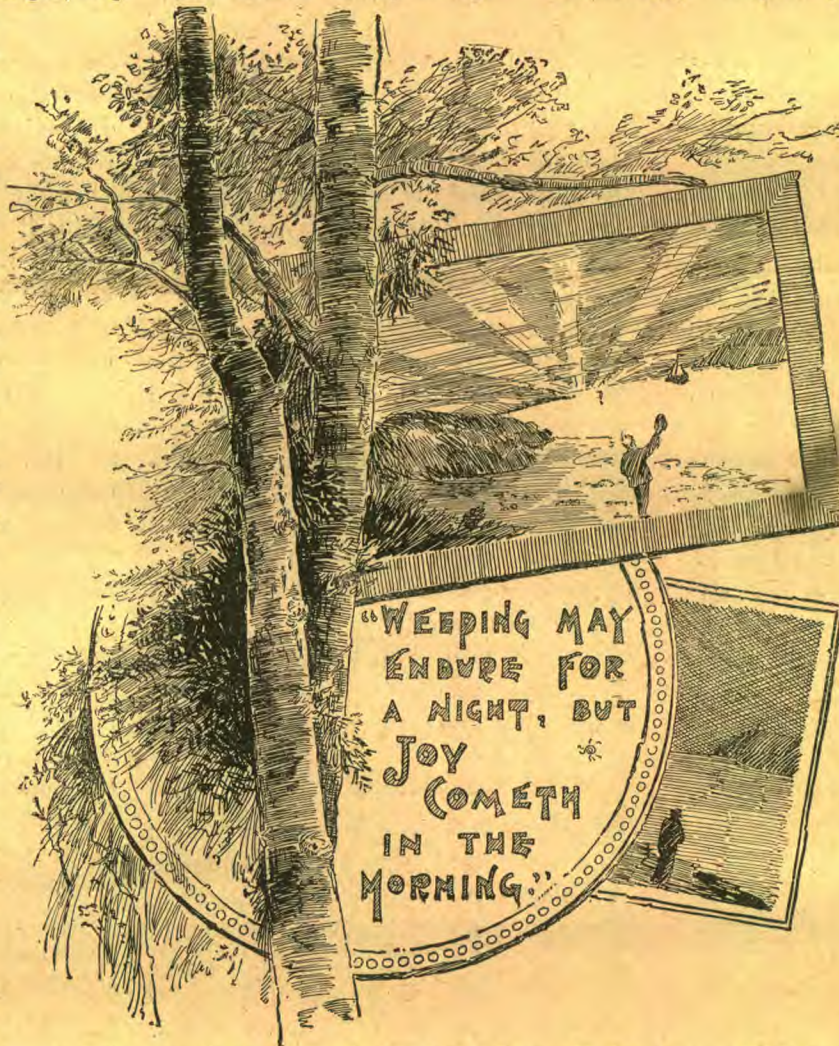 "WEEPING MAY
ENDURE FOR
A NIGHT, BUT
JOY
COMETH
IN THE
MORNING."